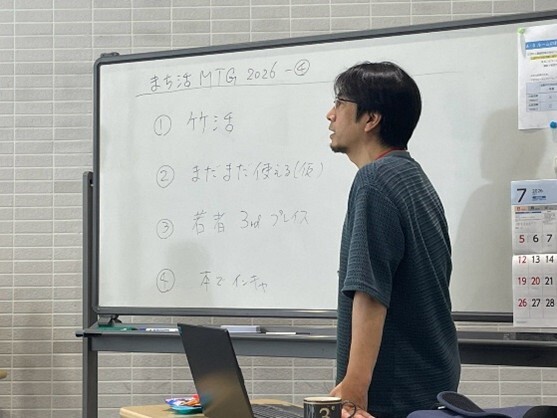 まち活 MTG 2026 -④
① 竹活
② まだまだ使える(仮)
③ 若者 3rd プレイス
④ 本でインキャ
7
5 6 7
12 13 14
19 20 21
26 27 28